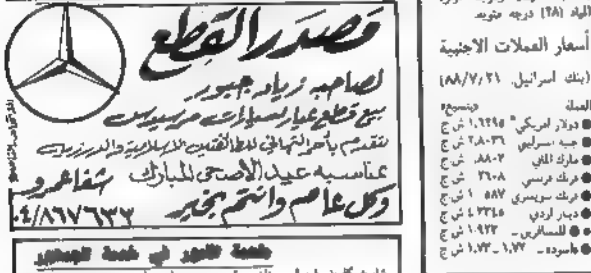 مصدر القطع
لصاحبه زياد جبور
بيع قطع غيار لسيارات مرسيدس
تتقدم بأحر التهاني للطائفتين الاسلامية والدرزية
بمناسبة عيد الأضحى المبارك شفاعمرو
وكل عام وانتم بخير ٠٤/٨٦٧٦٣٢
المياه (٢٨) درجه مئوية
أسعار العملات الاجنبية
(بنك اسرائيل ٨٨/٧/٢١)
العملة
● دولار امريكي ١,٦٢٩٥ ش ج
● جنيه استرليني ٢,٨٠٣٦ ش ج
● مارك الماني ٨٨٠٢, ش ج
● فرنك فرنسي ٢٦٠٨, ش ج
● فرنك سويسري ١,٠٥٨٧ ش ج
● دينار اردني ٤,٢٣٤٥ ش ج
● للمسافرين ـ ١,٠٩٢٣ ش ج
● السوداء ـ ١,٧٢ ـ ١,٧٣ ش ج